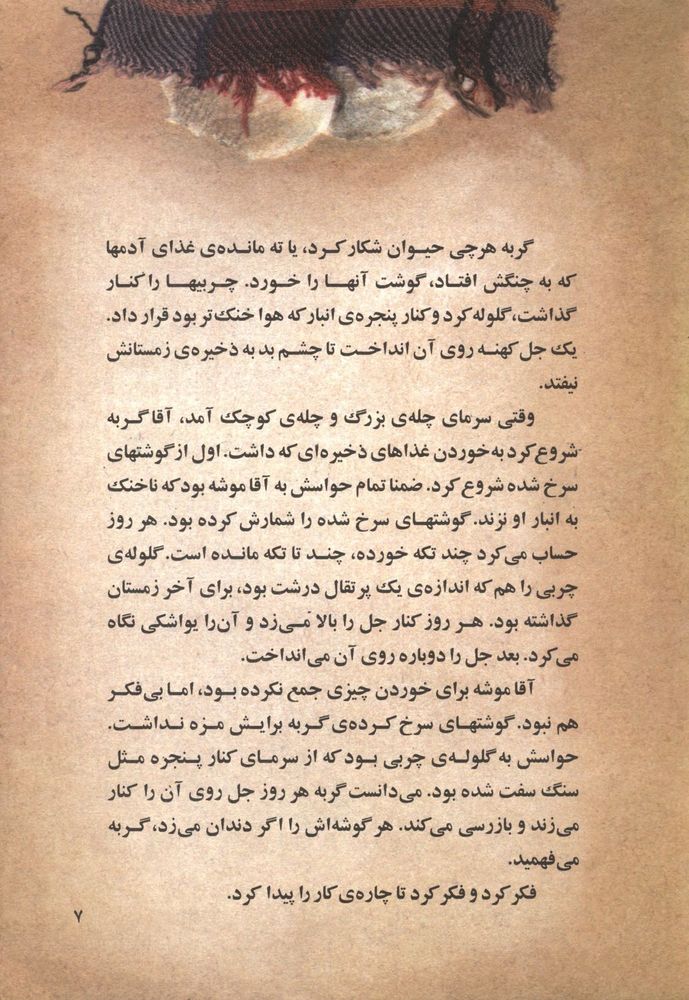 گربه هرچی حیوان شکار کرد، یا ته مانده‌ی غذای آدمها
که به چنگش افتاد، گوشت آنها را خورد. چربیها را کنار
گذاشت، گلوله کرد و کنار پنجره‌ی انبار که هوا خنک‌تر بود قرار داد.
یک جل کهنه روی آن انداخت تا چشم بد به ذخیره‌ی زمستانش
نیفتد.
وقتی سرمای چله‌ی بزرگ و چله‌ی کوچک آمد، آقا گربه
شروع کرد به خوردن غذاهای ذخیره‌ای که داشت. اول از گوشتهای
سرخ شده شروع کرد. ضمنا تمام حواسش به آقا موشه بود که ناخنک
به انبار او نزند. گوشتهای سرخ شده را شمارش کرده بود. هر روز
حساب می‌کرد چند تکه خورده، چند تا تکه مانده است. گلوله‌ی
چربی را هم که اندازه‌ی یک پرتقال درشت بود، برای آخر زمستان
گذاشته بود. هر روز کنار جل را بالا می‌زد و آن را یواشکی نگاه
می‌کرد. بعد جل را دوباره روی آن می‌انداخت.
آقا موشه برای خوردن چیزی جمع نکرده بود، اما بی‌فکر
هم نبود. گوشتهای سرخ کرده‌ی گربه برایش مزه نداشت.
حواسش به گلوله‌ی چربی بود که از سرمای کنار پنجره مثل
سنگ سفت شده بود. می‌دانست گربه هر روز جل روی آن را کنار
می‌زند و بازرسی می‌کند. هر گوشه‌اش را اگر دندان می‌زد، گربه
می‌فهمید.
فکر کرد و فکر کرد تا چاره‌ی کار را پیدا کرد.
۷